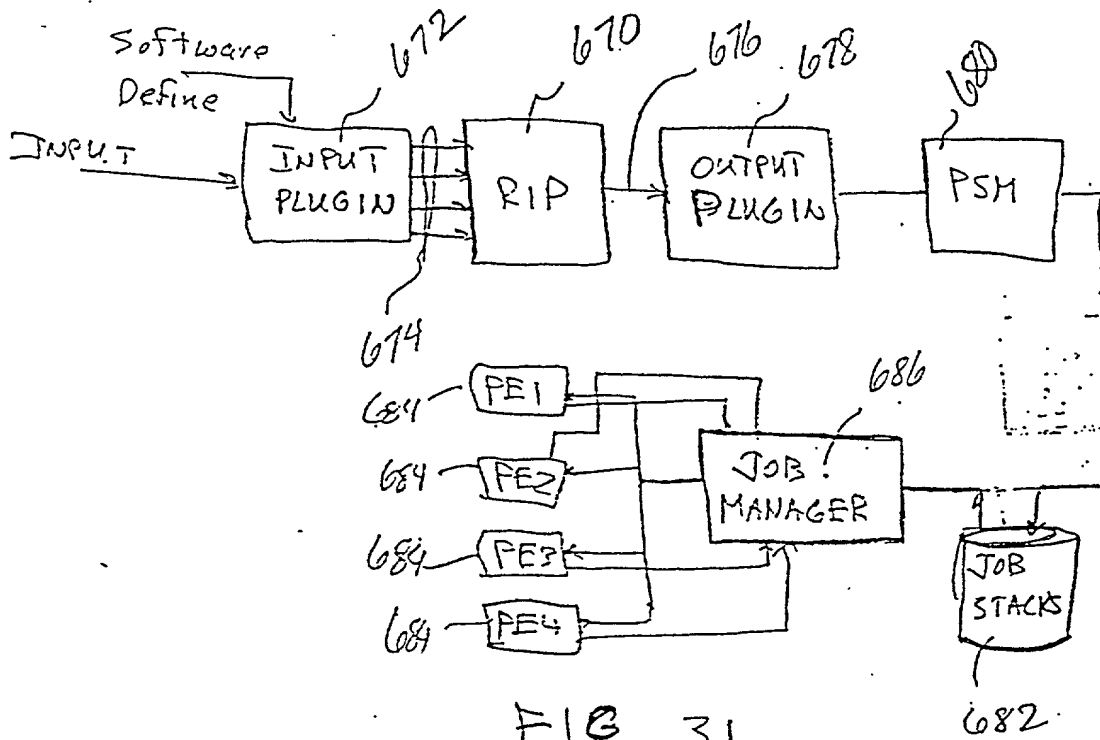 Software
Define
INPUT
672
INPUT
PLUGIN
674
670
RIP
676
678
OUTPUT
PLUGIN
680
PSM
684
PE1
684
PE2
684
PE3
684
PE4
686
JOB
MANAGER
JOB
STACKS
682
FIG 31